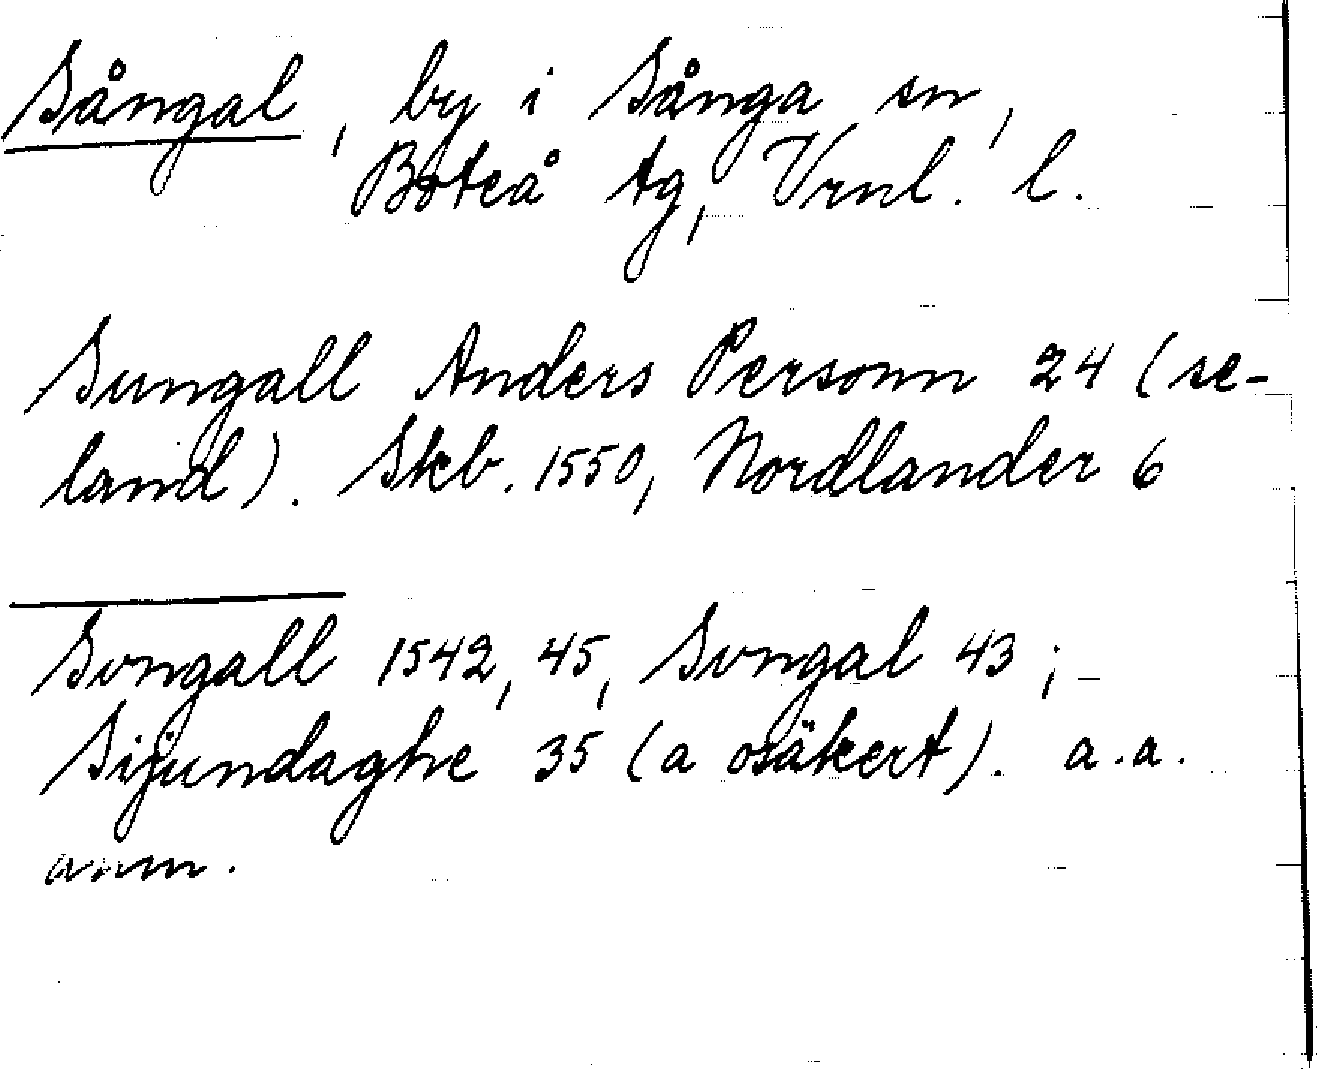 Sångal, by i Sånga sn,
Boteå tg, Vrnl. l.
Sungall Anders Personn 24 (se-
land). Skb. 1550, Nordlander 6
Songall 1542, 45, Songal 43;
Sijundaghe 35 (a osäkert). a.a.
anm.